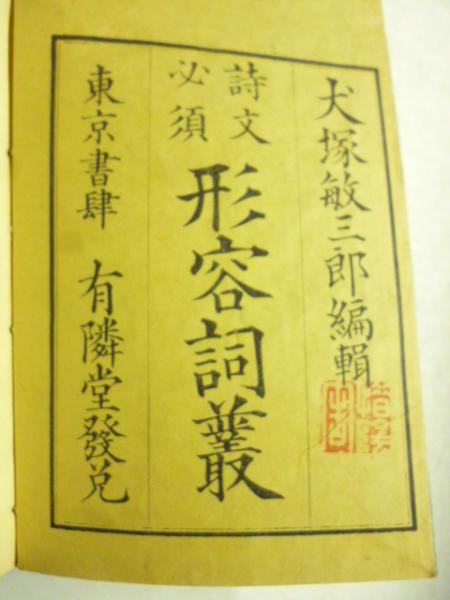 犬塚敏三郎編輯
詩文
必須
形容詞叢
東京書肆 有隣堂發兌